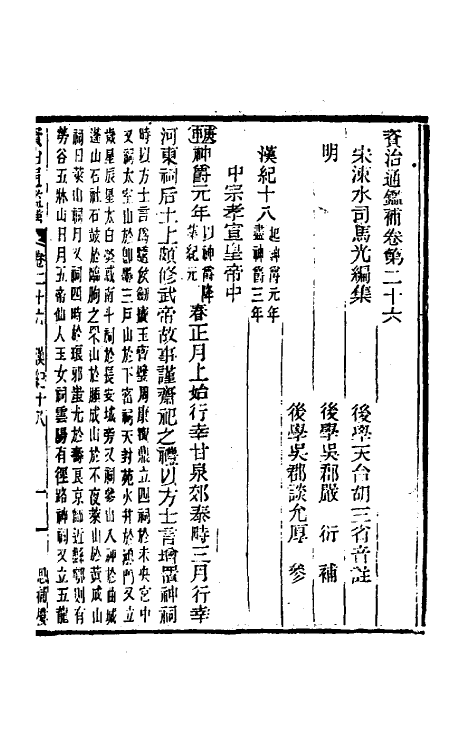 資治通鑑補卷第二十六
宋涑水司馬光編集
後學天台胡三省音註
明
後學吳郡嚴　衍　補
後學吳郡談允厚　參
漢紀十八
起庚申元年
盡神爵三年
中宗孝宣皇帝中
神爵元年
以神爵降集紀元
春正月上始行幸甘泉郊泰畤三月行幸
河東祠后土上頗修武帝故事謹齋祀之禮以方士言增置神祠
時以方士言爲隨侯劍寶玉寶璧周康寶鼎立四祠於未央宮中
又祠太室山於卽墨三戸山於下密祠天封苑火井於鴻門又立
歲星辰星太白熒惑南斗祠於長安城旁又祠參山八神於曲城
蓬山石社石鼓於臨朐之罘山於腄成山於不夜萊山於黃成山
祠日萊山祠月又祠四時於琅邪蚩尤於壽良京師近縣鄠則有
勞谷五牀山日月五帝仙人玉女祠雲陽有徑路神祠又立五龍
資治通鑑補　卷二十六　漢紀十八　一　思補樓